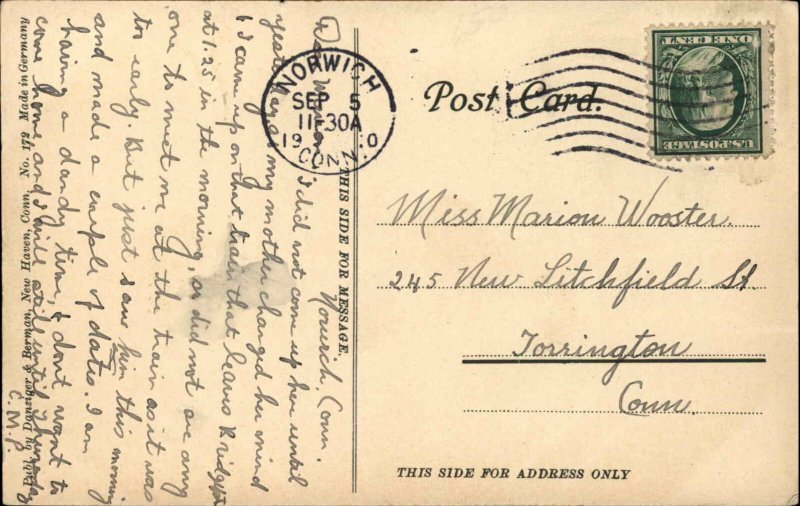 Norwich, Conn.
Dear Marion, I did not come up her until
yesterday as my mother changed her mind
& I came up on that train that leaves Bridgept
at 1.25 in the morning, so did not see any
one to meet me at the train as it was
to early. But just saw him this morning
and made a couple of dates. I am
having a dandy time, & dont want to
come home and I will stil until Tuesday
C.M.P.
THIS SIDE FOR MESSAGE.
Publ. by Danziger & Berman, New Haven, Conn. No. 172 Made in Germany
NORWICH
SEP 5
11-30A
19 0
CONN.
Post Card.
U.S. POSTAGE
ONE CENT
Miss Marion Wooster.
245 New Litchfield St
Torrington
Conn.
THIS SIDE FOR ADDRESS ONLY